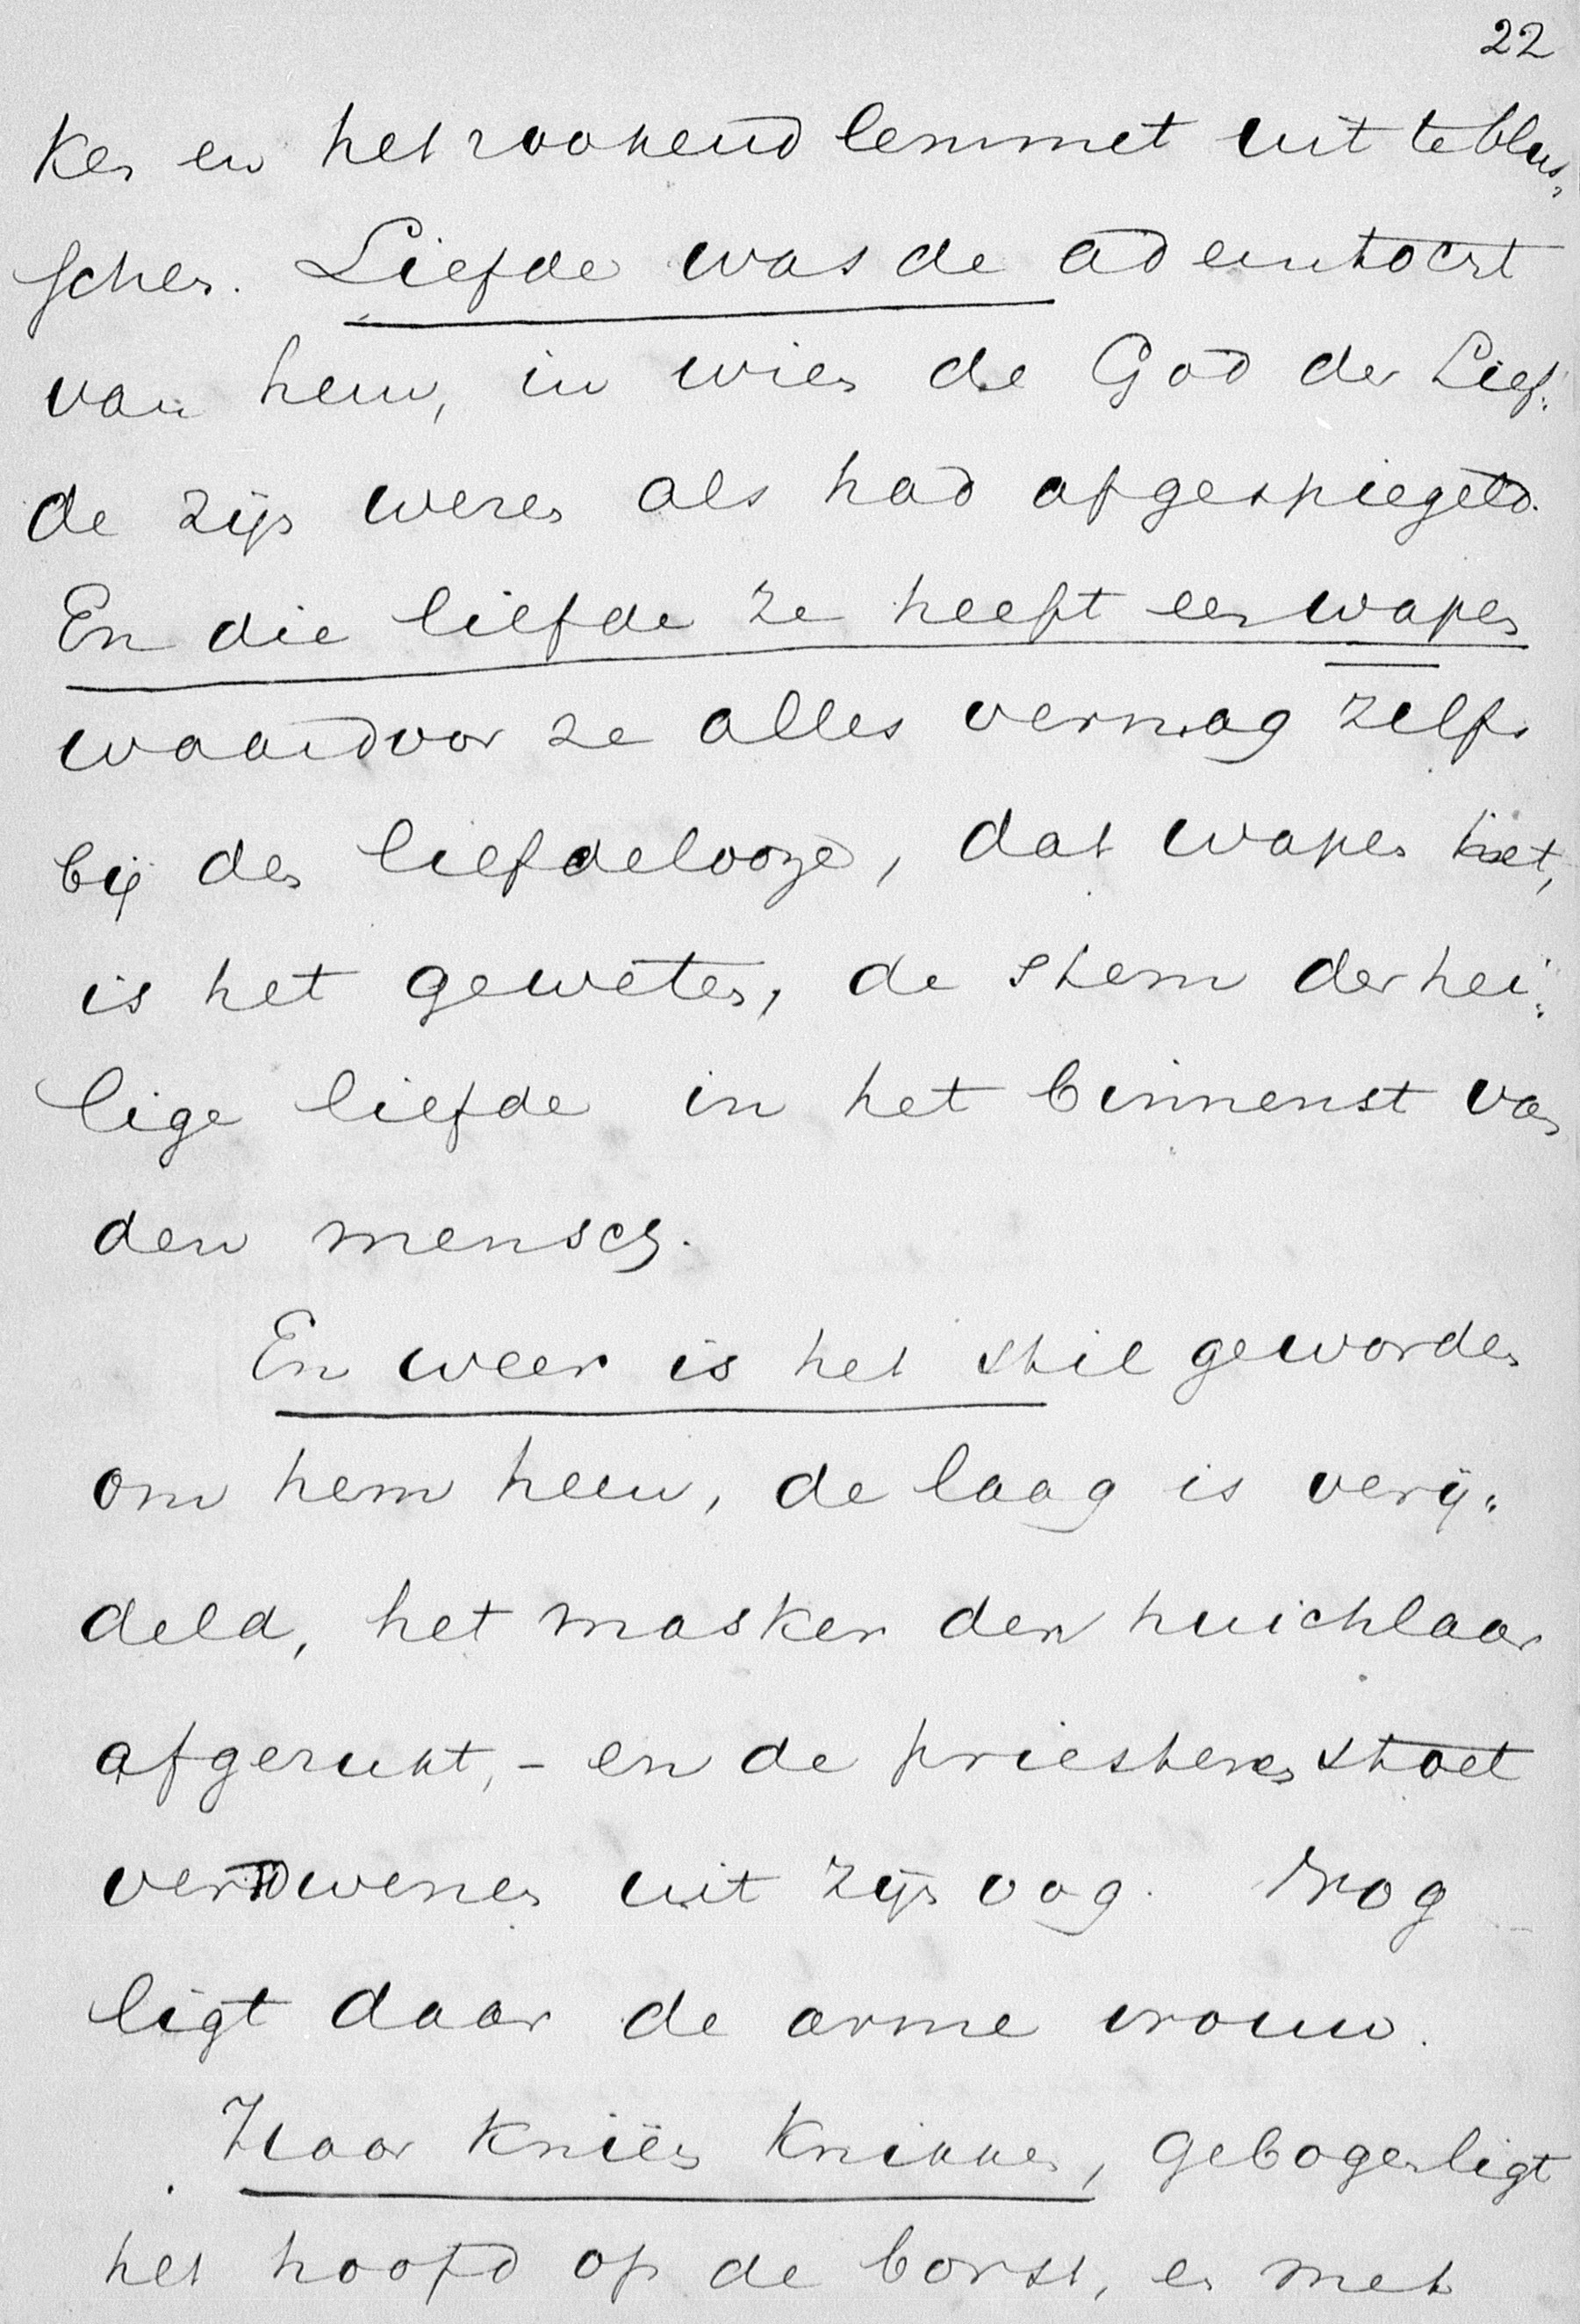 22
ken en het rookend lemmet uit te blus„
schen. Liefde was de ademtocht
van hem, in wien de God der Lief„
de zijn wezen als had afgespiegeld.
En die liefde ze heeft een wapen
waardoor ze alles vermag zelfs
bij den liefdelooze, dat wapen
is het geweten, de stem der hei„
lige liefde in het binnenst van
den mensch.
En weer is het stil geworden
om hem heen, de laag is verij„
deld, het masker den huichlaar
afgerukt, - en de priesteren stoet
verdwenen uit zijn oog. Nog
ligt daar de arme vrouw.
Haar knieën knikken, gebogen ligt
het hoofd op de borst, en met